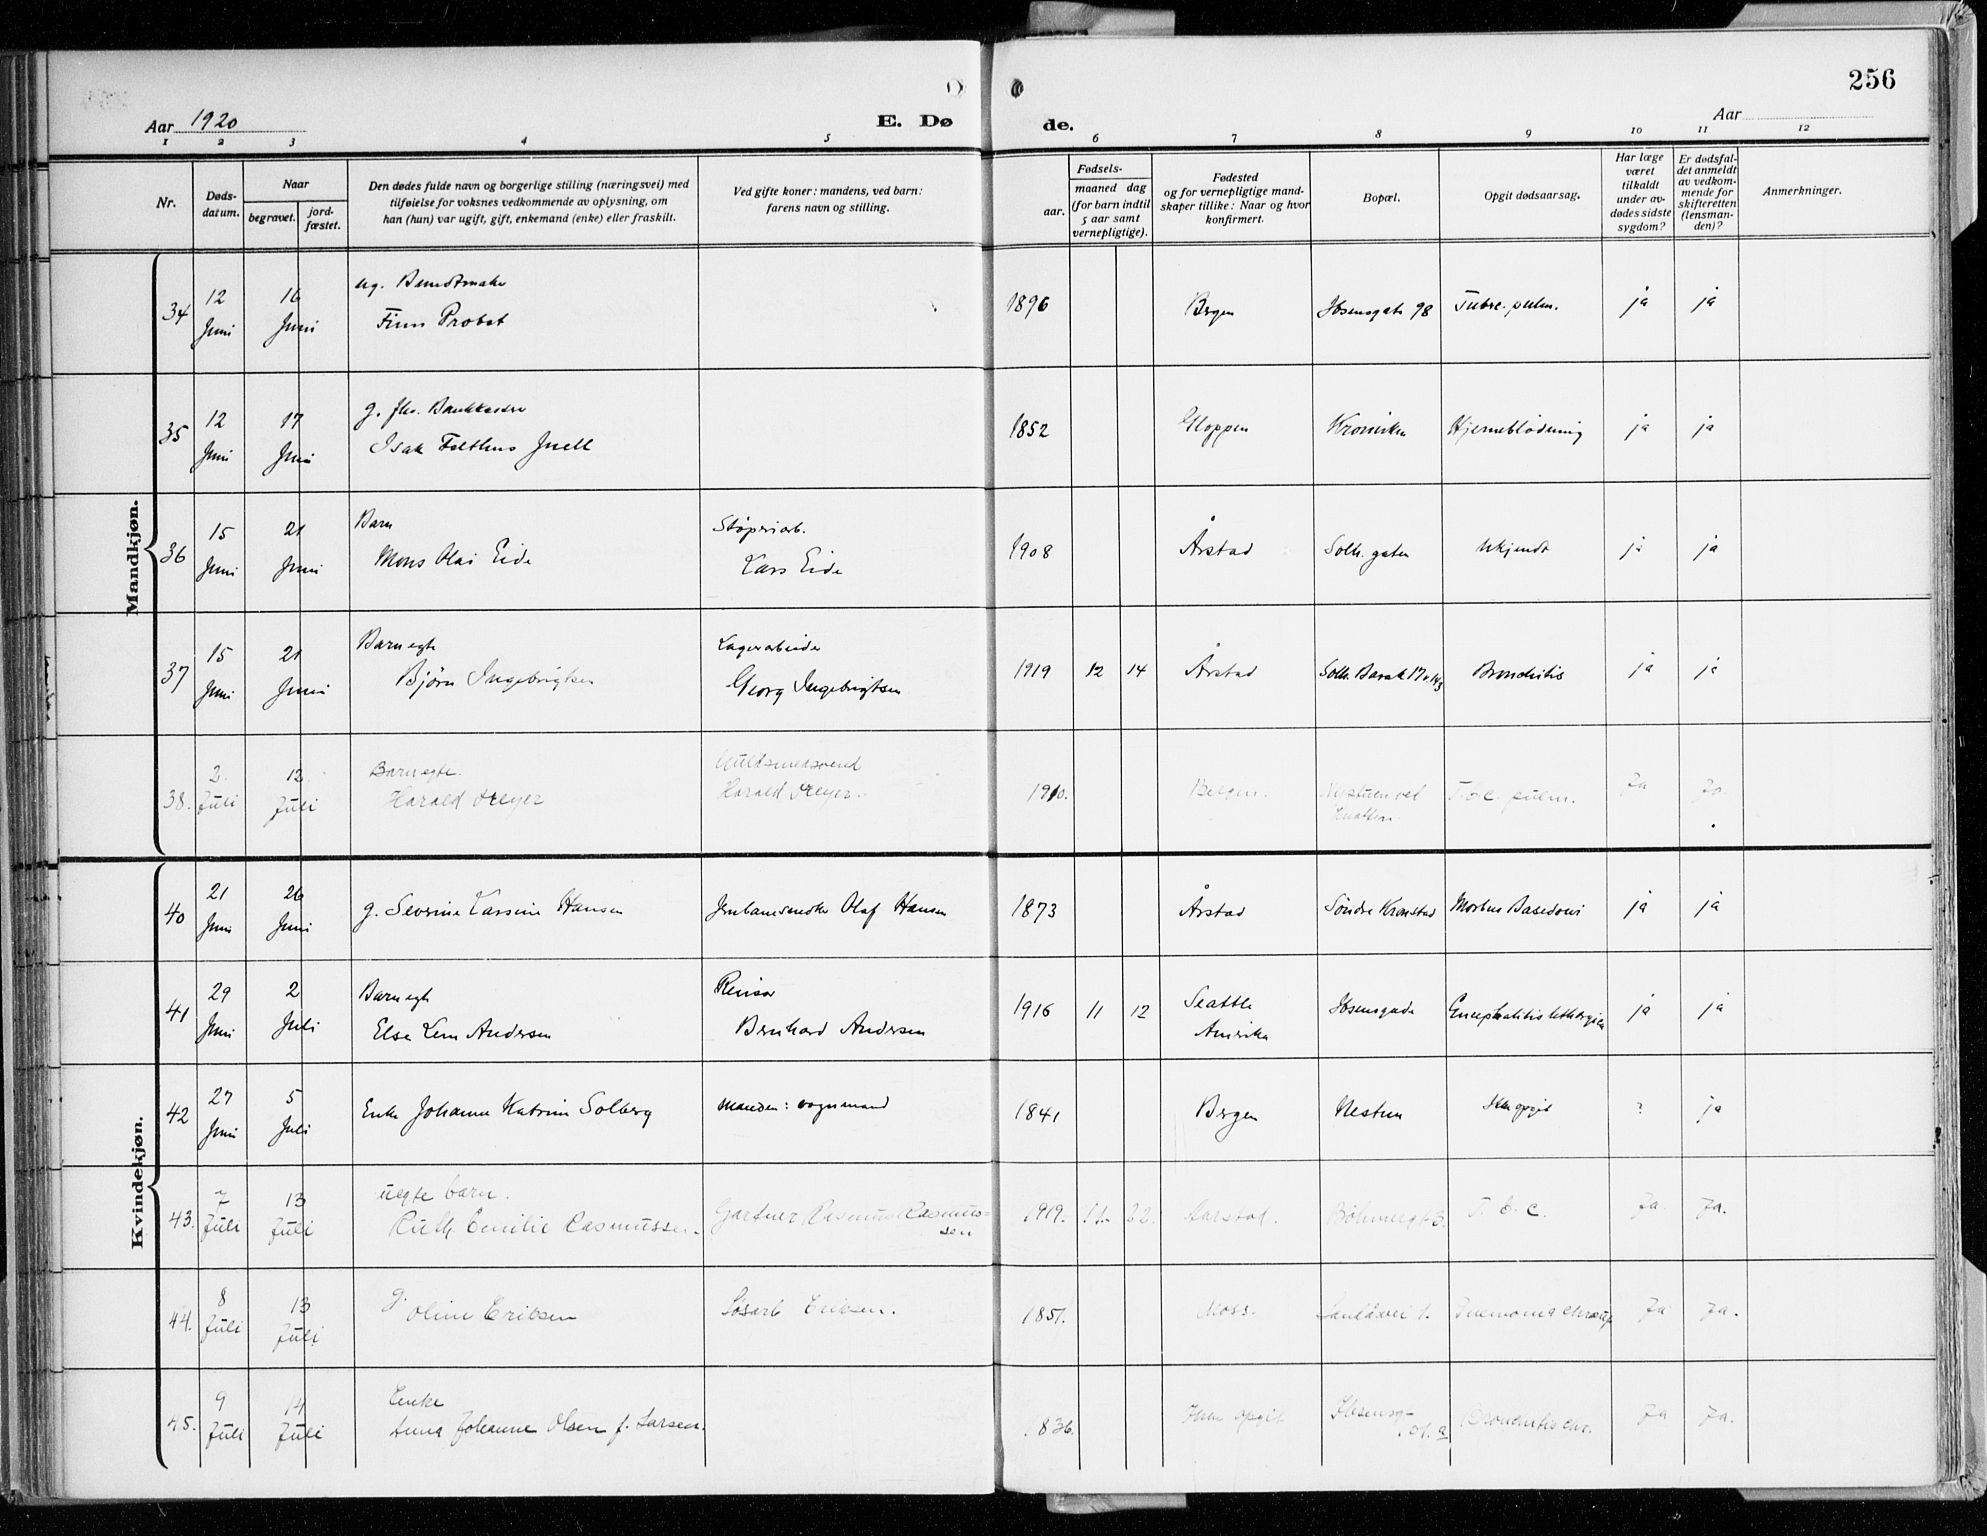 256
Aar 1920
E. Dø
de.
Aar
1 2 3 4 5 6 7 8 9 10 11 12
Nr.
Døds-
datum.
Naar
begravet.
jord-
fæstet.
Den dødes fulde navn og borgerlige stilling (næringsvei) med
tilføielse for voksnes vedkommende av oplysning, om
han (hun) var ugift, gift, enkemand (enke) eller fraskilt.
Ved gifte koner: mandens, ved barn:
farens navn og stilling.
Fødsels-
aar.
maaned dag
(for barn indtil
5 aar samt
vernepligtige).
Fødested
og for vernepligtige mand-
skaper tillike: Naar og hvor
konfirmert.
Bopæl.
Opgit dødsaarsag.
Har læge
været
tilkaldt
under av-
dødes sidste
sygdom?
Er dødsfal-
det anmeldt
av vedkom-
mende for
skifteretten
(lensman-
den)?
Anmerkninger.
Mandkjøn.
34 12 Juni 16 Juni ug.
Finn Probst 1896 Bergen Ibsensgate 98 Tubrc. pulm. ja ja
35 12 Juni 17 Juni g. fhv. Bankkasser
Isak Juell 1852 Gloppen Kroniken Hjerneblødning ja ja
36 15 Juni 21 Juni Barn Støperiarb.
Mons Olai Eide Lars Eide 1908 Årstad Solh. gaten Ukjendt ja ja
37 15 Juni 21 Juni Barn egte Lagerarbeider
Bjørn Ingebrigtsen Georg Ingebrigtsen 1919 12 14 Årstad Solh. Barak 17 Bronchitis ja ja
38. 2. Juli 12 Juli Barn egte. Guldsmedsvend
Harald Dreyer Harald Dreyer. 1910. Bergen. T.b.c. pulm. Ja Ja.
Kvindekjøn.
40 21 Juni 26 Juni g. Severine Larsine Hansen Olaf Hansen 1873 Årstad Søndre Kronstad Morbus Basedowi ja ja
41 29 Juni 2 Juli Barn egte Revisor
Else Lem Andersen Bernhard Andersen 1916 11 12 Seattle
Amerika Ibsensgade Encephalitis lethargica ja ja
42 27 Juni 5 Juli Enke Johanne Katrine Solberg Manden: vognmand 1841 Bergen Nestun Ikke opgit ? ja
43. 7 Juli 13 Juli uegte barn.
Ruth Emilie Rasmussen. Gartner Rasmus Rasmus-
sen 1919. 11. 22. Aarstad. T. b. c. Ja. Ja.
44. 8 Juli 13 Juli g.
Oline Eriksen Løsarb Eriksen. 1851. Moss. Ja Ja.
45. 9 Juli 14 Juli Enke
Anna Johanne Olsen f. Larsen. 1836. Ikke opgit Ibsensg-
101. a Bronchitis chr. Ja Ja.